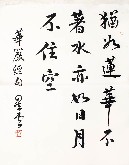 猶如蓮華不
著水亦如日月
不住空
華嚴經句
星雲